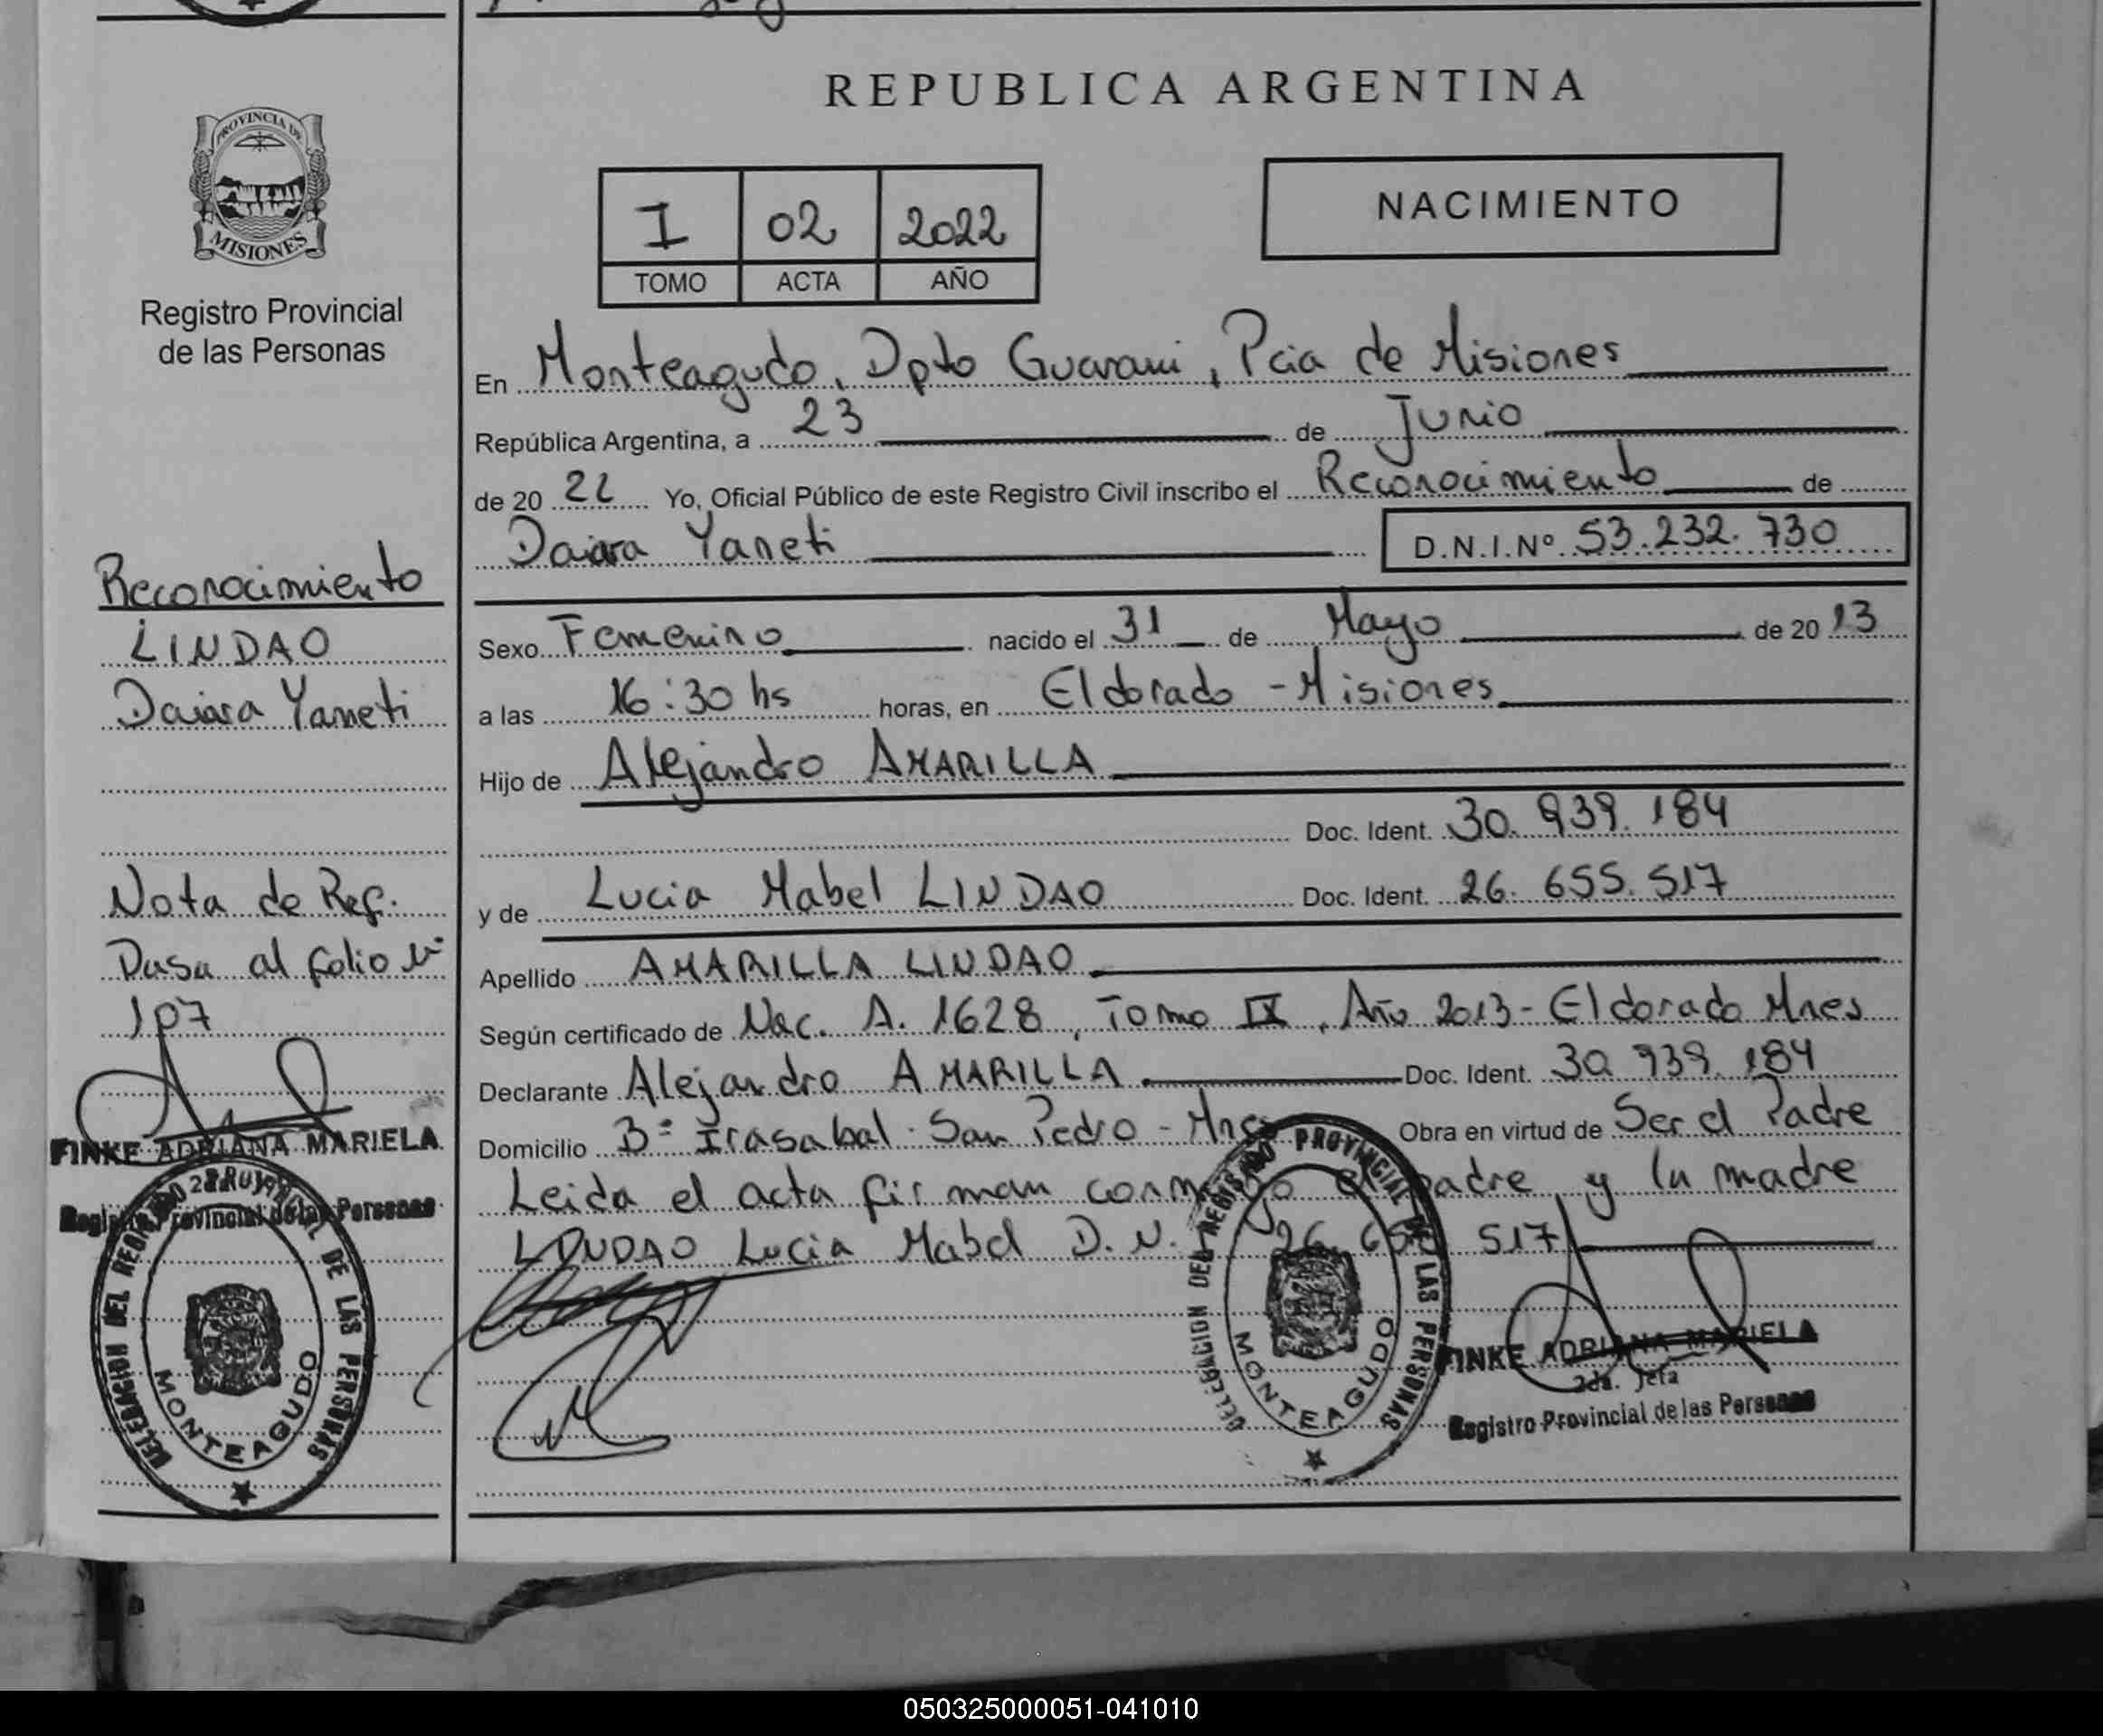 REPUBLICA ARGENTINA
PROVINCIA DE
MISIONES
Registro Provincial
de las Personas
I 02 2022
TOMO ACTA AÑO
NACIMIENTO
En Monteagudo, Dpto Guarani, Pcia de Misiones
República Argentina, a 23 de Junio
de 2022 Yo, Oficial Público de este Registro Civil inscribo el Reconocimiento de
Daiara Yaneti D.N.I.Nº 53.232.730
Sexo Femenino nacido el 31 de Mayo de 2013
a las 16:30 hs horas, en Eldorado - Misiones
Hijo de Alejandro AMARILLA
Doc. Ident. 30.939.184
y de Lucia Mabel LINDAO Doc. Ident. 26.655.517
Apellido AMARILLA LINDAO
Según certificado de Nac. A. 1628, Tomo IX, Año 2013 - Eldorado Mnes
Declarante Alejandro AMARILLA Doc. Ident. 30.939.184
Domicilio Bº Irasabal - San Pedro - Mnes Obra en virtud de Ser el Padre
Leida el acta firman conmigo el padre y la madre
LINDAO Lucia Mabel D.N. 26.655.517
Reconocimiento
LINDAO
Daiara Yaneti
Nota de Ref.
Pasa al folio Nº
107
FINKE ADRIANA MARIELA
Registro Provincial de las Personas
DELEGACION DEL REGISTRO PROVINCIAL DE LAS PERSONAS
MONTEAGUDO
DELEGACION DEL REGISTRO PROVINCIAL DE LAS PERSONAS
MONTEAGUDO
FINKE ADRIANA MARIELA
2da. Jefa
Registro Provincial de las Personas
050325000051-041010